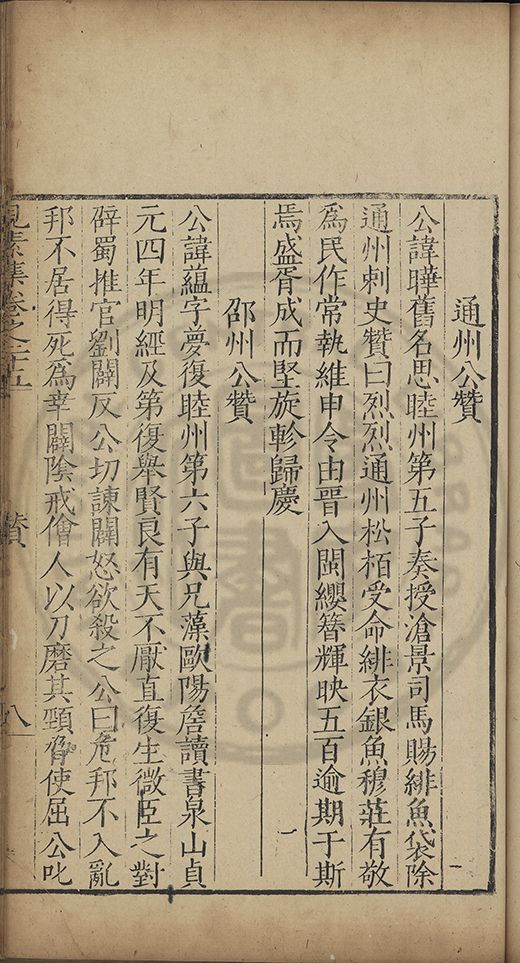 通州公贊
公諱曄舊名思睦州第五子奏授滄景司馬賜緋魚袋除
通州刺史贊曰烈烈通州松栢受命緋衣銀魚穆莊有敬
爲民作常執維申令由晉入閩纓簪輝映五百逾期于斯
焉盛胥成而堅旋軫歸慶
邵州公贊
公諱藴字夢復睦州第六子與兄藻歐陽詹讀書泉山貞
元四年明經及第復舉賢良有天不厭直復生微臣之對
辟蜀推官劉闢反公切諫闢怒欲殺之公曰危邦不入亂
邦不居得死爲幸闢陰戒儈人以刀磨其頸脅使屈公叱
見素集卷之
贊
八